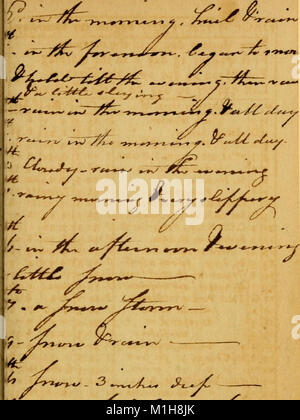 in the morning, hail & rain
th
- in the forenoon. began to snow
& held till the evening, then rain
& a little sleying -
th - rain in the morning. & all day
rain in the morning. & all day.
Cloudy - rain in the evening
rainy morning & very slippery
th
6 - in the afternoon & evening
little snow
th
7 - a Snow Storm -
9 - Snow & rain -
th
Snow - 3 inches deep -
alamy
M1H8JK